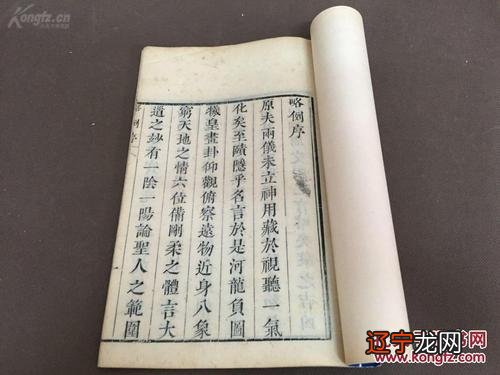 Kongfz.cn
略例序
原夫兩儀未立神用藏於視聽一氣
化矣至賾隱乎名言於是河龍負圖
犧皇畫卦仰觀俯察遠物近身八象
窮天地之情六位備剛柔之體言大
道之妙有一陰一陽論聖人之範圍
略例序
书网
辽宁龙网
www.kongfz.com